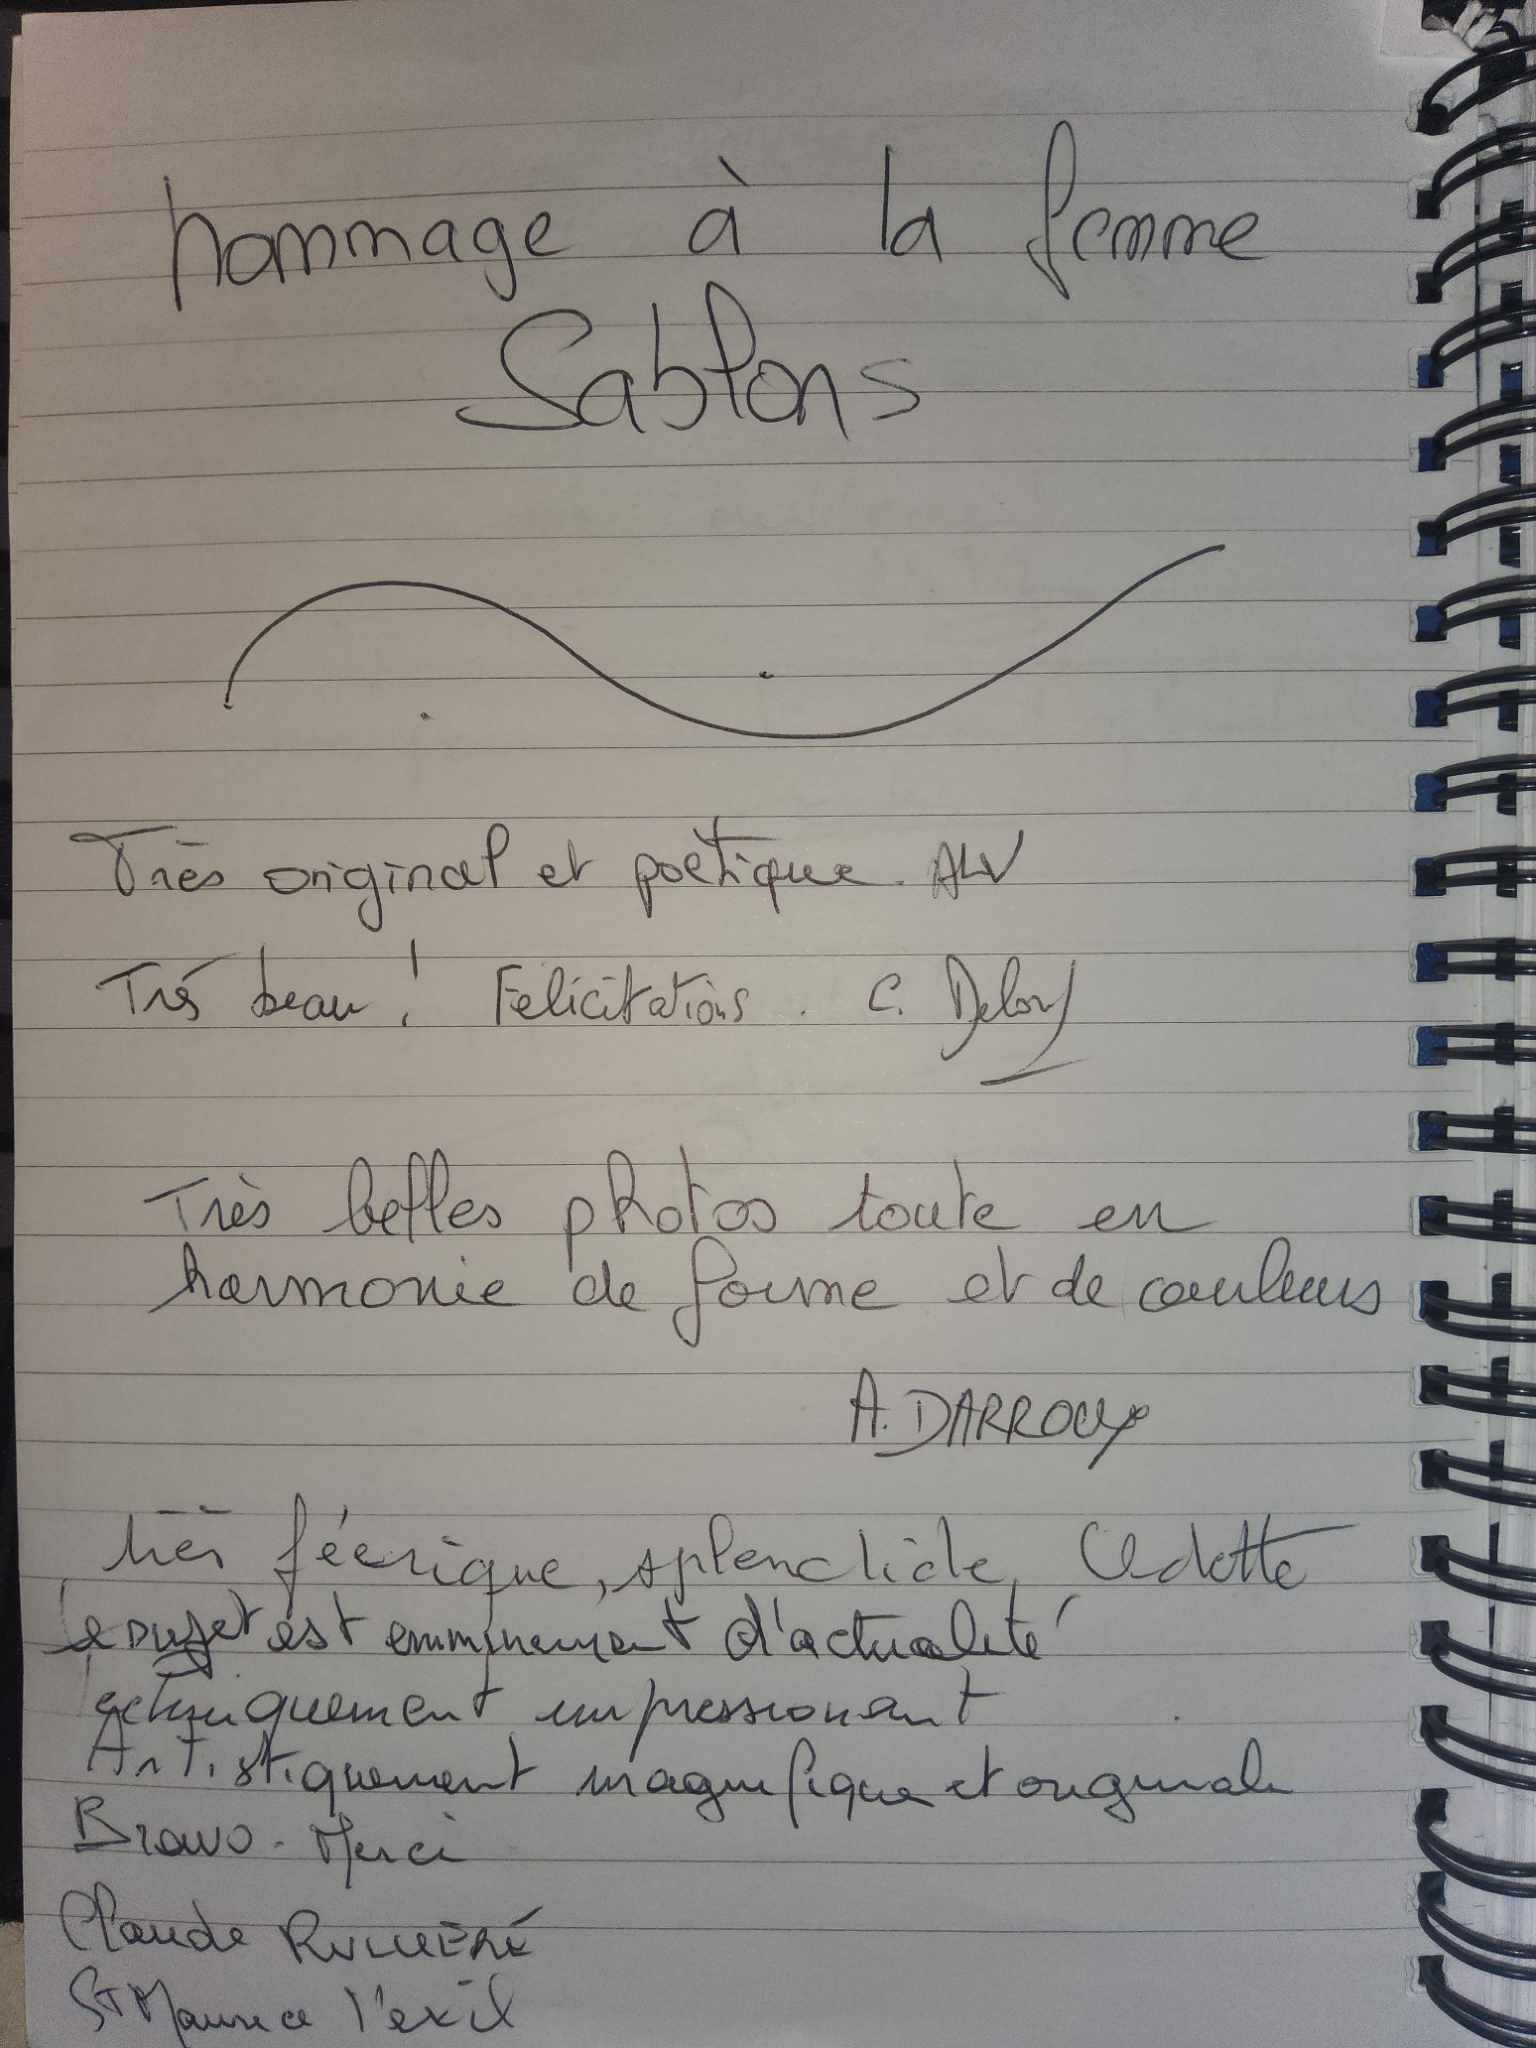 hommage à la femme
Sablons
Très original et poétique. ALV
Très beau ! Félicitations. C.
Très belles photos toute en
harmonie de forme et de couleurs
A. DARROUX
très féerique, splendide, Odette
le sujet est emminement d'actualité
techniquement impressionant
Artistiquement magnifique et originale
Bravo - Merci
Claude
St Maurice l'exil